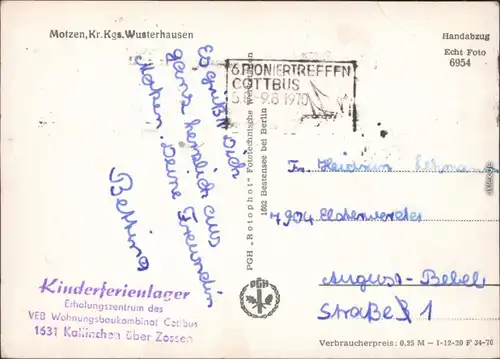 Motzen, Kr. Kgs. Wusterhausen
Handabzug
Echt Foto
6954
6. PIONIERTREFFEN
COTTBUS
5.8.-9.8 1970
Es grüßt Dich
ganz herzlich aus
Motzen, Deine Freundin
Bettina
PGH „Rotophot" Fototechnische Werkstätten
1602 Bestensee bei Berlin
Fr. Heidrun
7904 Elsterwerda
August-Bebel
Straße 1
Kinderferienlager
Erholungszentrum des
VEB Wohnungsbaukombinat Cottbus
1631 Kallinchen über Zossen
PGH
Verbraucherpreis: 0,25 M – I-12-20 F 34-70